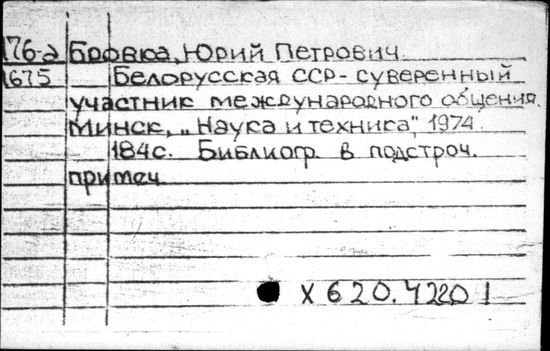 176-д Бровка, Юрий Петрович.
1675 Белорусская ССР - суверенный
участник международного общения.
Минск, „Наука и техника", 1974.
184с. Библиогр. в подстроч.
примеч.
X 620.4220 1